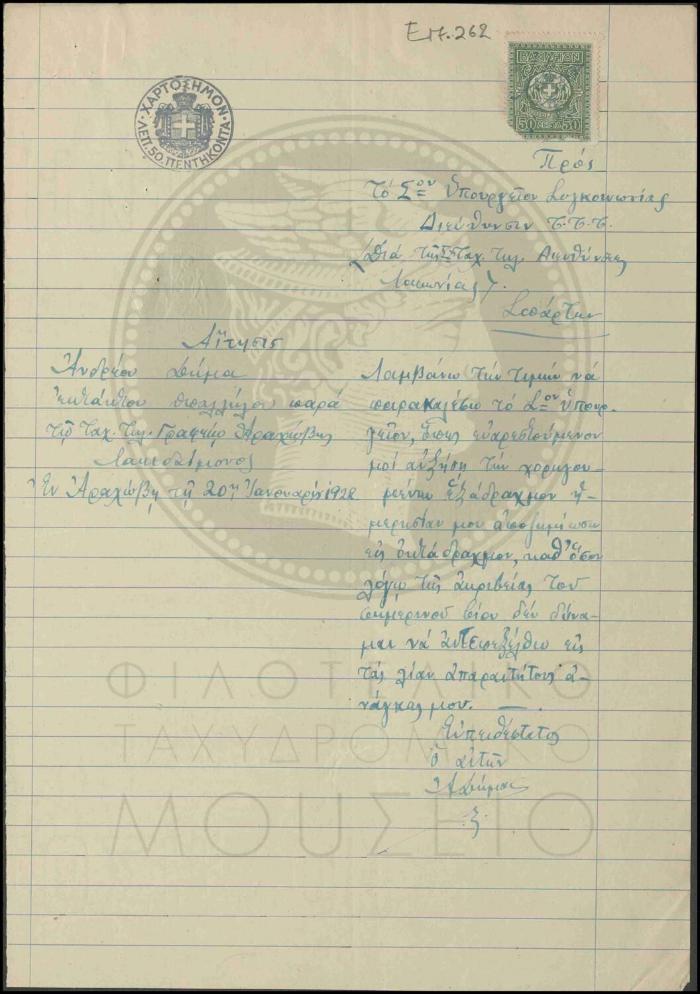 Επ. 262
ΧΑΡΤΟΣΗΜΟΝ
ΛΕΠ. 50. ΠΕΝΤΗΚΟΝΤΑ
50 50
Πρός
τό Σον Ὑπουργεῖον Συγκοινωνίας
Διεύθυνσιν Τ.Τ.Τ.
(Διά τῆς Ταχ. Τηλ. Διευθύνσεως
Λακωνίας).
Σπάρτην
Αἴτησις
Ἀνδρέου Δήμα
ἐκτάκτου ὑπαλλήλου παρά
τῷ Ταχ. Τηλ. Γραφείῳ Ἀραχώβης
Λακεδαίμονος
Ἐν Ἀραχώβῃ τῇ 20ῃ Ἰανουαρίου 1928
Λαμβάνω τήν τιμήν νά
παρακαλέσω τό Σον Ὑπουρ-
γεῖον, ὅπως εὐαρεστούμενον
μοί αὐξήσῃ τήν χορηγου-
μένην ἑξάδραχμον ἡ-
μερησίαν μου ἀποζημίωσιν
εἰς ὀκτάδραχμον, καθ' ὅσον
λόγῳ τῆς ἀκριβείας τοῦ
σημερινοῦ βίου δέν δύνα-
μαι νά ἀντεπεξέλθω εἰς
τάς λίαν ἀπαραιτήτους ἀ-
νάγκας μου.
Εὐπειθέστατος
Ὁ αἰτῶν
ΑΔήμας
ΦΙΛΟΤΕΛΙΚΟ
ΤΑΧΥΔΡΟΜΙΚΟ
ΜΟΥΣΕΙΟ